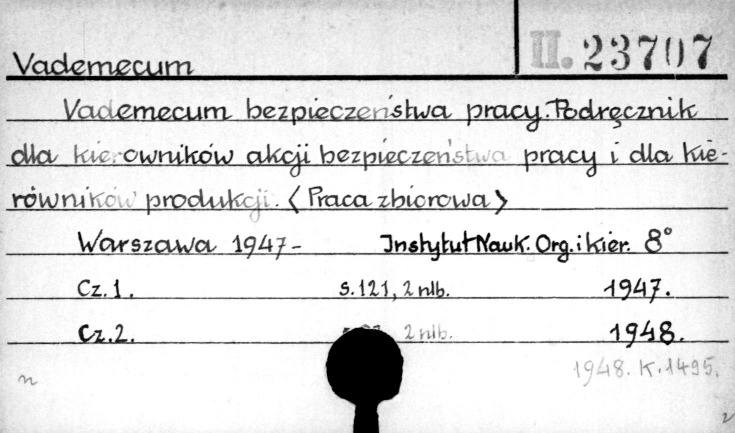 II. 23707
Vademecum
Vademecum bezpieczeństwa pracy. Podręcznik
dla kierowników akcji bezpieczeństwa pracy i dla kie-
równików produkcji. (Praca zbiorowa)
Warszawa 1947- Instytut Nauk. Org. i kier. 8°
Cz. 1. s. 121, 2 nlb. 1947.
Cz. 2. 2 nlb. 1948.
1948. K. 1495.
n